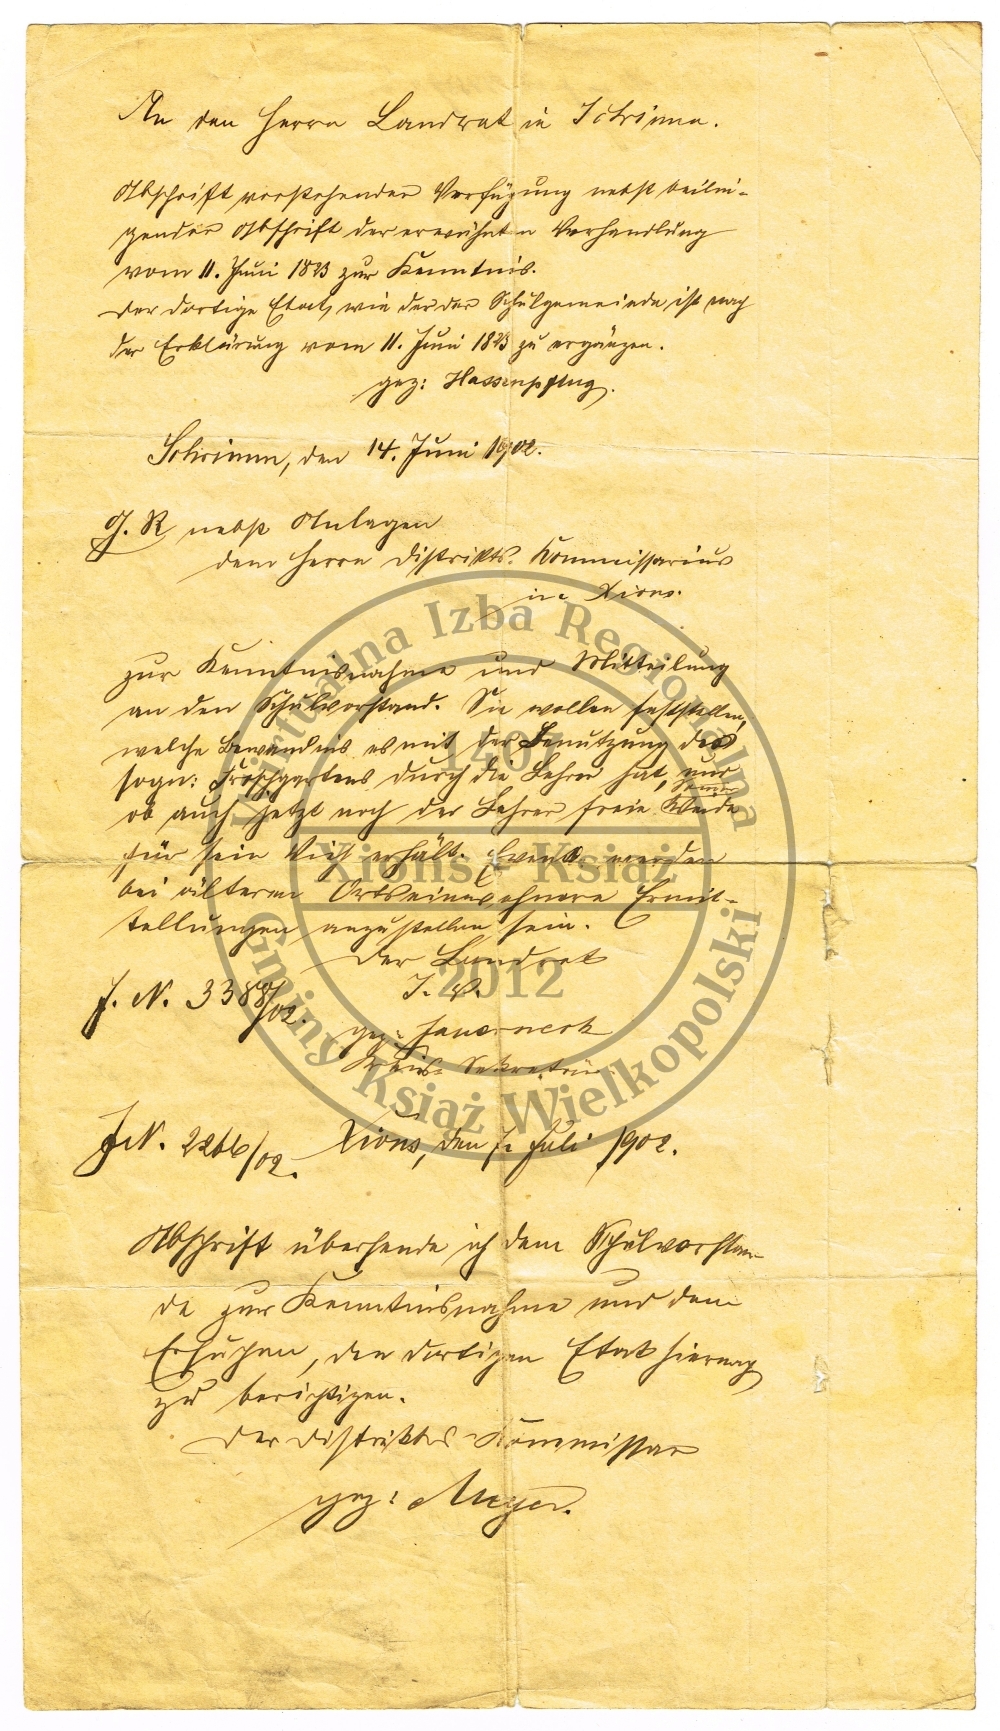 An den Herrn Landrat in Schrimm.
Abschrift vorstehender Verfügung nebst beilie-
gender Abschrift der erwähnten Verhandlung
vom 11. Juni 1823 zur Kenntnis.
Der dortige Etat, wie der der Schulgemeinde ist nach
der Erklärung vom 11. Juni 1823 zu ergänzen.
gez: Hassenpflug.
Schrimm, den 14. Juni 1902.
R nebst Anlagen
dem Herrn Distrikts-Kommissarius
in Xions.
zur Kenntnisnahme und Mitteilung
an den Schulvorstand. Sie wollen feststellen,
welche Bewandnis es mit der Benutzung des
sogn: Froschgartens durch die Lehrer hat, und
ob auch jetzt noch der Lehrer freie Weide
für sein Vieh erhält. Event. werden
bei älteren Ortseinwohnern Ermit-
tellungen anzustellen sein.
Der Landrat
I. V.
J. N. 3388/02.
gez:
Kreis-Sekretär.
J.N. 2266/02. Xions, den 7. Juli 1902.
Abschrift übersende ich dem Schulvorstan-
de zur Kenntnisnahme und dem
Ersuchen, den dortigen Etat hiernach
zu berichtigen.
Der Distrikts-Kommissar
gez: Meyer.
Wirtualna Izba Regionalna
1407
Xions - Książ
2012
Gminy Książ Wielkopolski